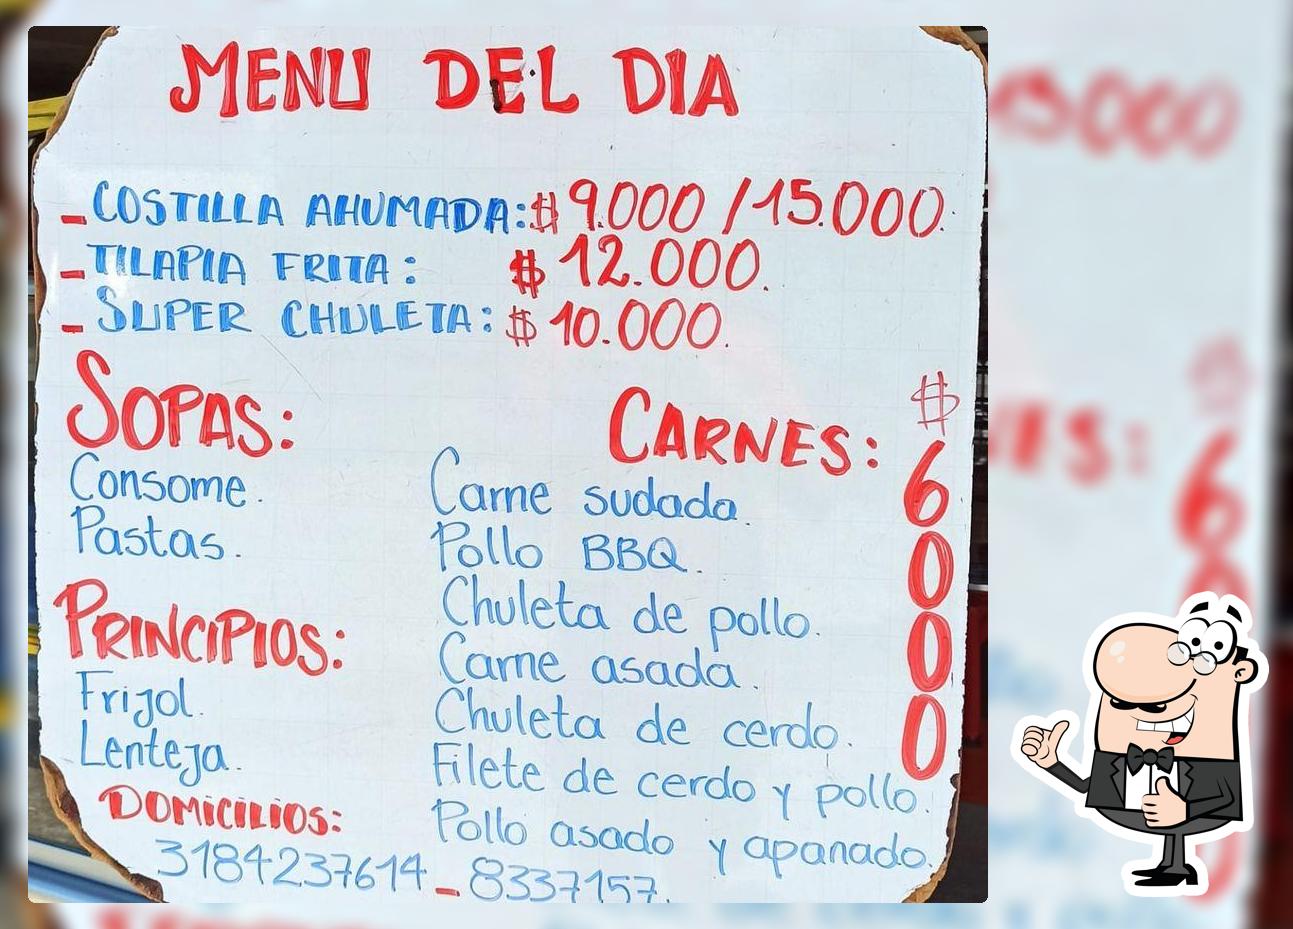 MENU DEL DIA
- COSTILLA AHUMADA: $ 9.000 / 15.000.
- TILAPIA FRITA: $ 12.000.
- SUPER CHULETA: $ 10.000.
SOPAS:
Consome.
Pastas.
PRINCIPIOS:
Frijol.
Lenteja.
CARNES: $ 6000
Carne sudada.
Pollo BBQ.
Chuleta de pollo.
Carne asada.
Chuleta de cerdo.
Filete de cerdo y pollo.
Pollo asado y apanado.
DOMICILIOS:
3184237614 - 8337157.